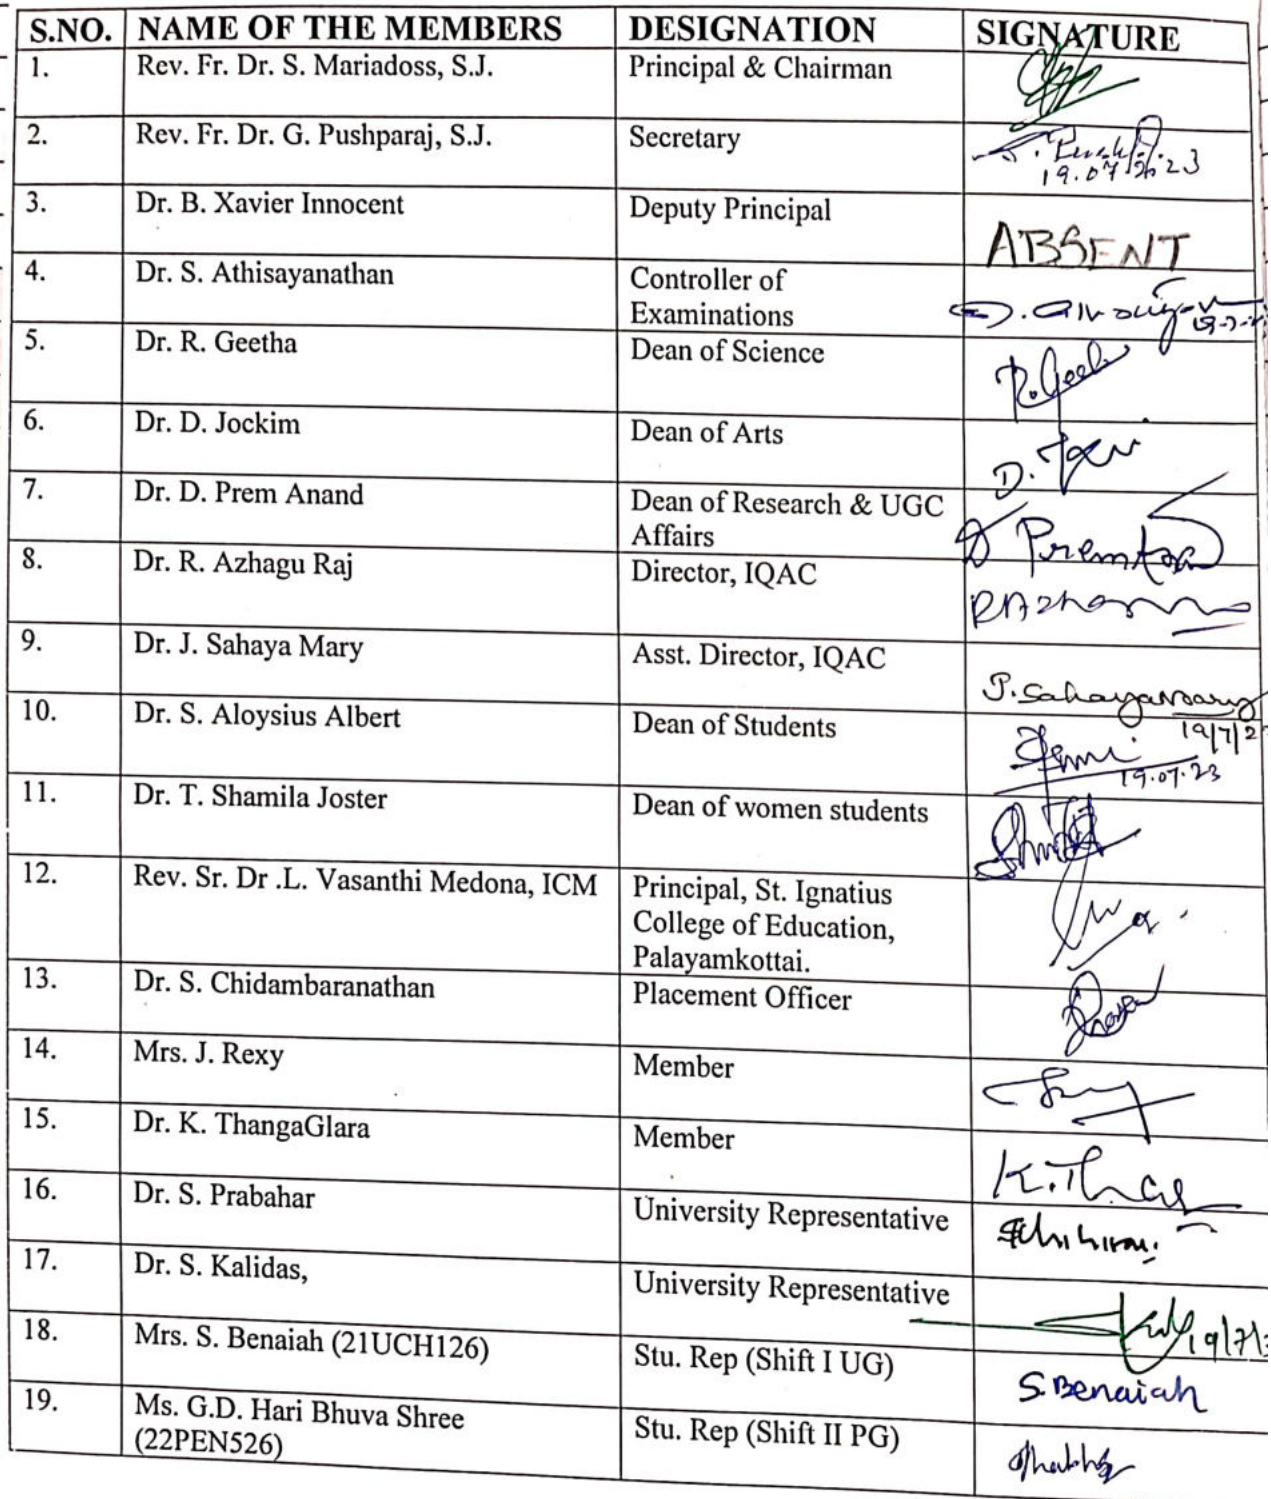 S.NO. NAME OF THE MEMBERS DESIGNATION SIGNATURE
1. Rev. Fr. Dr. S. Mariadoss, S.J. Principal & Chairman
2. Rev. Fr. Dr. G. Pushparaj, S.J. Secretary
19.07.2023
3. Dr. B. Xavier Innocent Deputy Principal
ABSENT
4. Dr. S. Athisayanathan Controller of
Examinations
5. Dr. R. Geetha Dean of Science
R. Geeth
6. Dr. D. Jockim Dean of Arts
D.
7. Dr. D. Prem Anand Dean of Research & UGC
Affairs
8. Dr. R. Azhagu Raj Director, IQAC
9. Dr. J. Sahaya Mary Asst. Director, IQAC
J. Sahayamary
19/7/2
10. Dr. S. Aloysius Albert Dean of Students
19.07.23
11. Dr. T. Shamila Joster Dean of women students
12. Rev. Sr. Dr .L. Vasanthi Medona, ICM Principal, St. Ignatius
College of Education,
Palayamkottai.
13. Dr. S. Chidambaranathan Placement Officer
14. Mrs. J. Rexy Member
15. Dr. K. ThangaGlara Member
16. Dr. S. Prabahar University Representative
17. Dr. S. Kalidas, University Representative
19/7/2
18. Mrs. S. Benaiah (21UCH126) Stu. Rep (Shift I UG)
S. Benaiah
19. Ms. G.D. Hari Bhuva Shree Stu. Rep (Shift II PG)
(22PEN526)